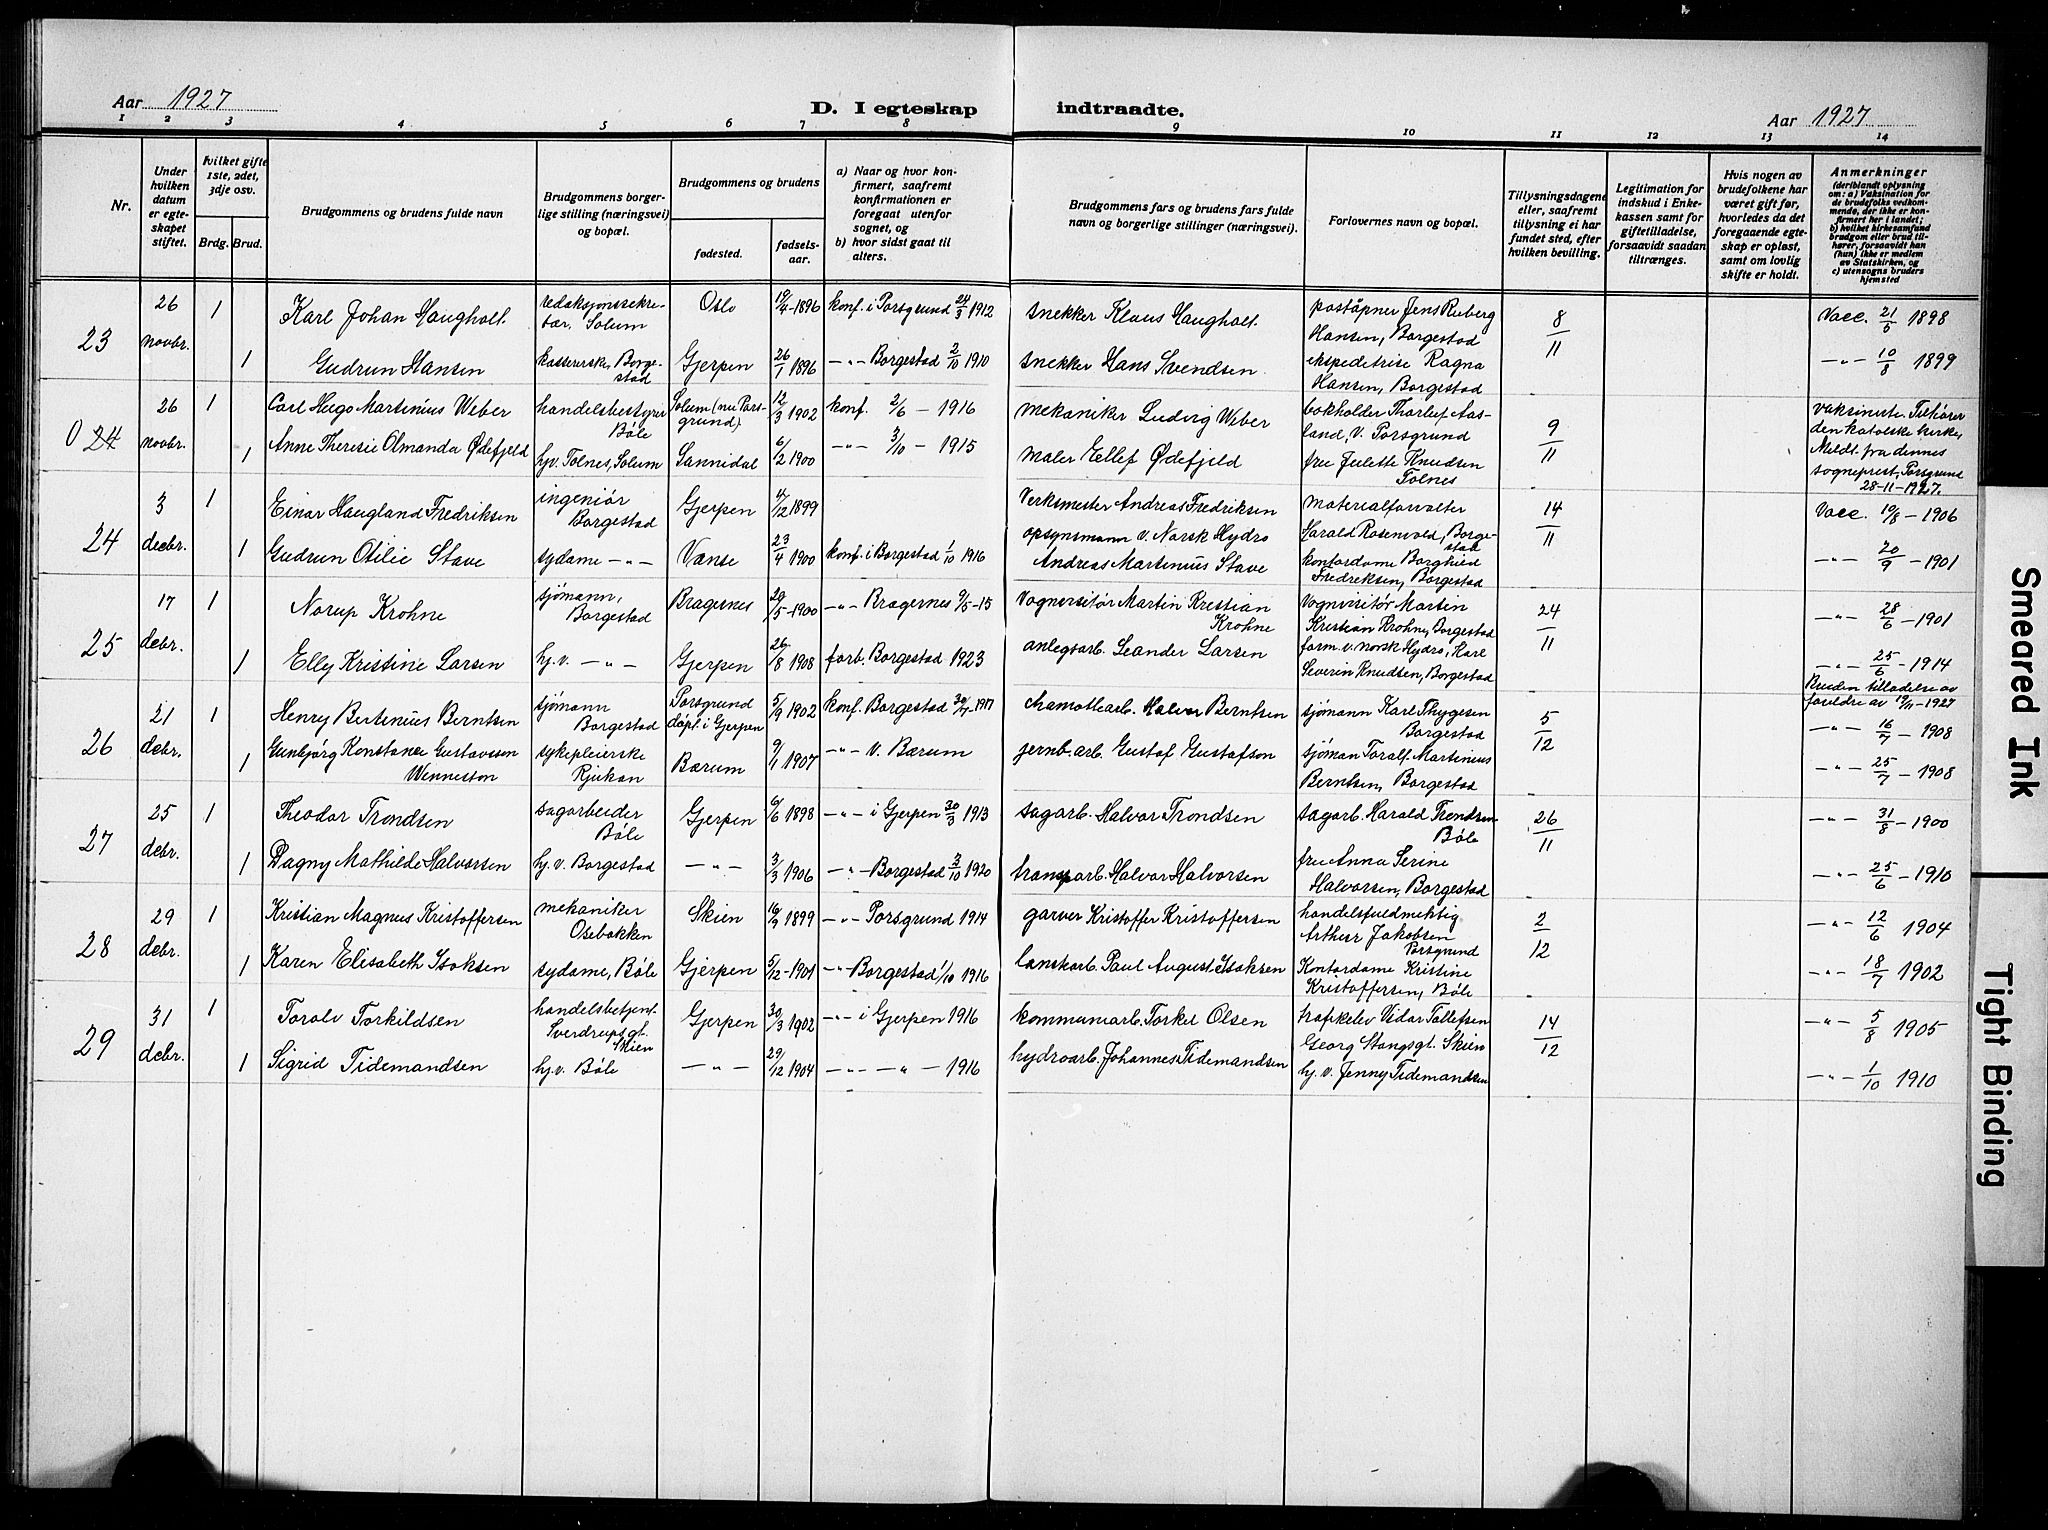 Aar 1927
D. I egteskap indtraadte.
Aar 1927
1 2 3 4 5 6 7 8 9 10 11 12 13 14
Nr.
Under hvilken datum er egteskapet stiftet.
hvilket gifte 1ste, 2det, 3dje osv.
Brdg. Brud.
Brudgommens og brudens fulde navn
Brudgommens borgerlige stilling (næringsvei) og bopæl.
Brudgommens og brudens
fødested.
fødselsaar.
a) Naar og hvor konfirmert, saafremt konfirmationen er foregaat utenfor sognet, og
b) hvor sidst gaat til alters.
Brudgommens fars og brudens fars fulde navn og borgerlige stillinger (næringsvei).
Forlovernes navn og bopæl.
Tillysningsdagene eller, saafremt tillysning ei har fundet sted, efter hvilken bevilling.
Legitimation for indskud i Enkekassen samt for giftetilladelse, forsaavidt saadan tiltrænges.
Hvis nogen av brudefolkene har været gift før, hvorledes da det foregaaende egteskap er opløst, samt om lovlig skifte er holdt.
Anmerkninger
(deriblandt oplysning om: a) Vaksination for de brudefolks vedkommende, der ikke er konfirmert her i landet;
b) hvilket kirkesamfund brudgom eller brud tilhører, forsaavidt han (hun) ikke er medlem av Statskirken, og
c) utensogns bruders hjemsted
23
26 novbr.
1 Karl Johan Haugholt. redaksjonssekretær, Solum Oslo 19/4-1896 konf. i Porsgrund 24/3 1912 snekker Klaus Haugholt. poståpner Jens Ruberg Hansen, Borgestad 8/11 Vacc. 21/6 1898
1 Gudrun Hansen kassererske, Borgestad Gjerpen 26/1 1896 -"- Borgestad 2/10 1910 snekker Hans Svendsen ekspeditrise Ragna Hansen, Borgestad -"- 10/8 1899
0 24
26 novbr.
1 Carl Hugo Martinius Weber handelsbestyrer Bøle Solum (nu Porsgrund) 12/3 1902 konf. 2/6 - 1916 mekaniker Ludvig Weber bokholder Thorleif Aasland, V. Porsgrund 9/11 vaksinerte. Tilhører den katolske kirke, Meldt. fra dennes sogneprest, Porsgrund 28-11-1927.
1 Anne Therese Olmanda Ødefjeld hj.v. Tolnes, Solum Sannidal 6/2 1900 -"- 3/10 - 1915 maler Ellef Ødefjeld fru Julette Knudsen Tolnes
24
3 decbr.
1 Einar Haugland Fredriksen ingeniør Borgestad Gjerpen 4/12 1899 Verksmester Andreas Fredriksen materialforvalter Harald Rosenvold, Borgestad 14/11 Vacc. 19/8 - 1906
1 Gudrun Otilie Stave sydame -"- Vanse 23/4 1900 konf. i Borgestad 1/10 1916 opsynsmann v. Norsk Hydro Andreas Martinius Stave kontordame Borghild Fredriksen, Borgestad -"- 20/9 - 1901
25
17 debr.
1 Norup Krohne sjømann, Borgestad Bragernes 29/5-1900 -"- Bragernes 9/5-15 Vognvisitør Martin Kristian Krohne Vognvisitør Martin Kristian Krohne, Borgestad 24/11 -"- 28/6 - 1901
1 Elly Kristine Larsen hj.v. -"- Gjerpen 26/8 1908 forb. Borgestad 1923 anlegsarb. Leander Larsen form. v. norsk Hydro, Karl Severin Knudsen, Borgestad -"- 25/6 - 1914
Bruden tilladelse av foreldre av 19/11-1927
26
21 debr.
1 Henry Bertinius Berntsen sjømann Borgestad Porsgrund døpt i Gjerpen 5/9 1902 konf. Borgestad 30/9-1917 chamottearb. Halvor Berntsen sjømann Karl Thygesen Borgestad 5/12 -"- 16/7 - 1908
1 Gunbjørg Konstance Gustavsson Wenneston sykepleierske Rjukan Bærum 9/1 1907 -"- V. Bærum jernb.arb. Gustaf Gustafson sjøman Toralf Martinius Berntsen, Borgestad -"- 25/7 - 1908
27
25 debr.
1 Theodor Trondsen sagarbeider Bøle Gjerpen 6/6 1898 -"- i Gjerpen 30/3 1913 sagarb. Halvor Trondsen sagarb. Harald Trondsen Bøle 26/11 -"- 31/8 - 1900
1 Dagny Mathilde Halvorsen hj.v. Borgestad -"- 3/3 1906 -"- Borgestad 3/10 1920 transparb. Halvor Halvorsen fru Anna Serine Halvorsen, Borgestad -"- 25/6 - 1910
28
29 debr.
1 Kristian Magnus Kristoffersen mekaniker Osebakken Skien 16/9 1899 -"- Porsgrund 1914 garver Kristoffer Kristoffersen handelsfuldmektig Arthur Jakobsen Porsgrund 2/12 -"- 12/6 1904
1 Karen Elisabeth Isaksen sydame, Bøle Gjerpen 5/12-1901 -"- Borgestad 1/10 1916 Paul August Isaksen Kontordame Kristine Kristoffersen, Bøle -"- 18/7 1902
29
31 debr.
1 Toralv Torkildsen handelsbetjent. Sverdrupsgt. Skien Gjerpen 30/3 1902 -"- i Gjerpen 1916 kommunearb. Torkil Olsen trafikelev Vidar Tollefsen Georg Stangsgt. Skien 14/12 -"- 5/8 1905
1 Sigrid Tidemandsen hj.v. Bøle -"- 29/12 1904 -"- -"- 1916 hydroarb. Johannes Tidemandsen hj.v. Jenny Tidemandsen -"- 1/10 1910
Smeared Ink
Tight Binding